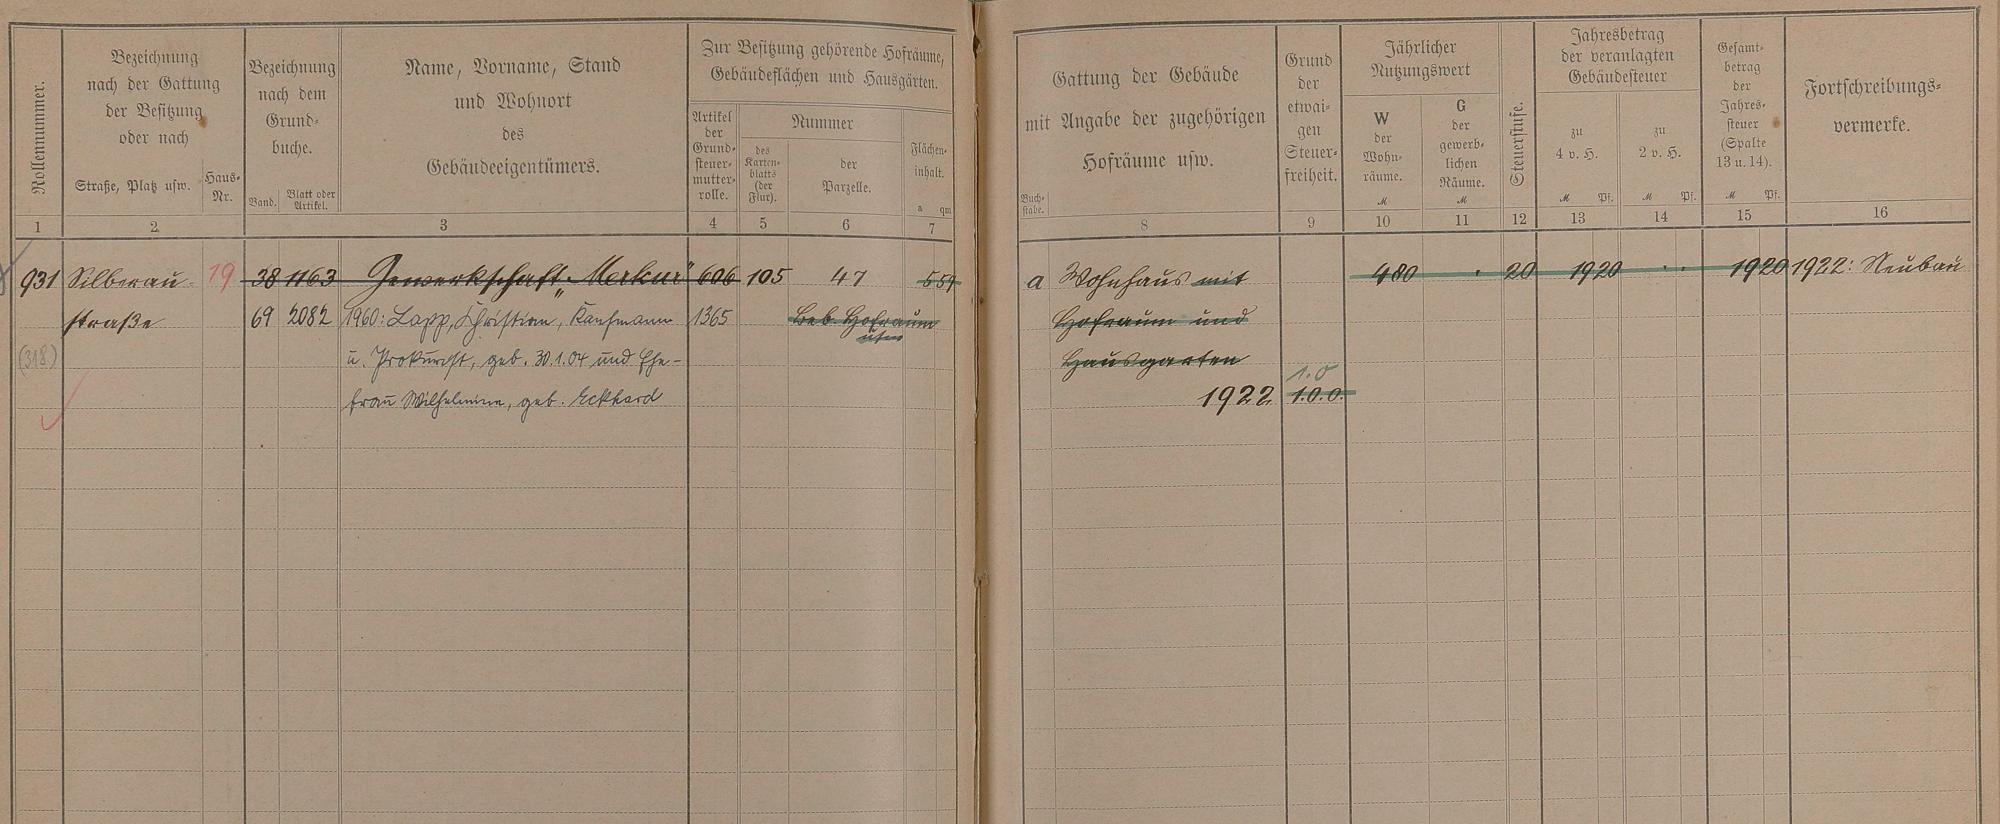 Rollennummer.
Bezeichnung
nach der Gattung
der Besitzung
oder nach
Straße, Platz usw.
Haus-
Nr.
Bezeichnung
nach dem
Grund-
buche.
Band.
Blatt oder
Artikel.
Name, Vorname, Stand
und Wohnort
des
Gebäudeeigentümers.
Zur Besitzung gehörende Hofräume,
Gebäudeflächen und Hausgärten.
Artikel
der
Grund-
steuer-
mutter-
rolle.
Nummer
des
Karten-
blatts
(der
Flur).
der
Parzelle.
Flächen-
inhalt.
a qm
1 2 3 4 5 6 7
931 Silberau- 19 38 1163 Gewerkschaft „Merkur" 606 105 47 559
straße 69 2082 1960: Lapp, Christian, Kaufmann 1365 Beb. Hofraum
usw
(318) u. Prokurist, geb. 30.1.04 und Ehe-
frau Wilhelmine, geb. Eckhard
Gattung der Gebäude
mit Angabe der zugehörigen
Hofräume usw.
Buch-
stabe.
Grund
der
etwai-
gen
Steuer-
freiheit.
Jährlicher
Nutzungswert
W
der
Wohn-
räume.
M
G
der
gewerb-
lichen
Räume.
M
Steuerstufe.
Jahresbetrag
der veranlagten
Gebäudesteuer
zu
4 v. H.
M Pf.
zu
2 v. H.
M Pf.
Gesamt-
betrag
der
Jahres-
steuer
(Spalte
13 u. 14).
M Pf.
Fortschreibungs-
vermerke.
8 9 10 11 12 13 14 15 16
a Wohnhaus mit 480 . 20 1920 . . 1920 1922: Neubau
Hofraum und
Hausgarten
1.0
1922 1.0.0.